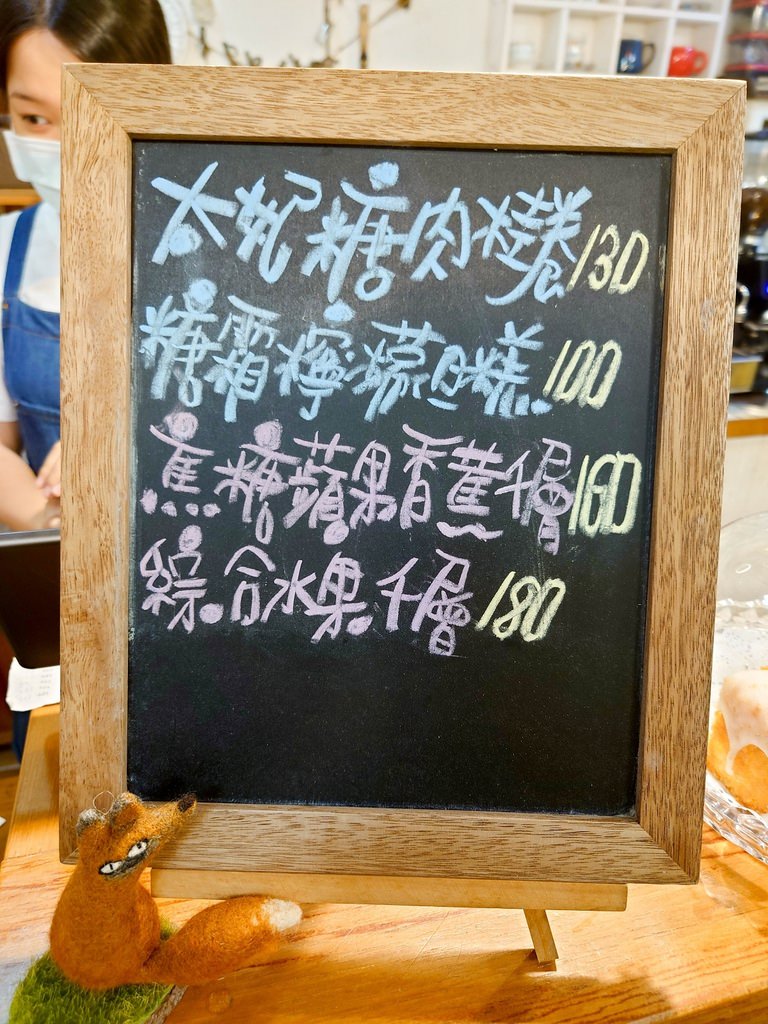 太妃糖肉桂捲130
糖霜檸檬旦糕100
焦糖蘋果香蕉千層160
綜合水果千層180